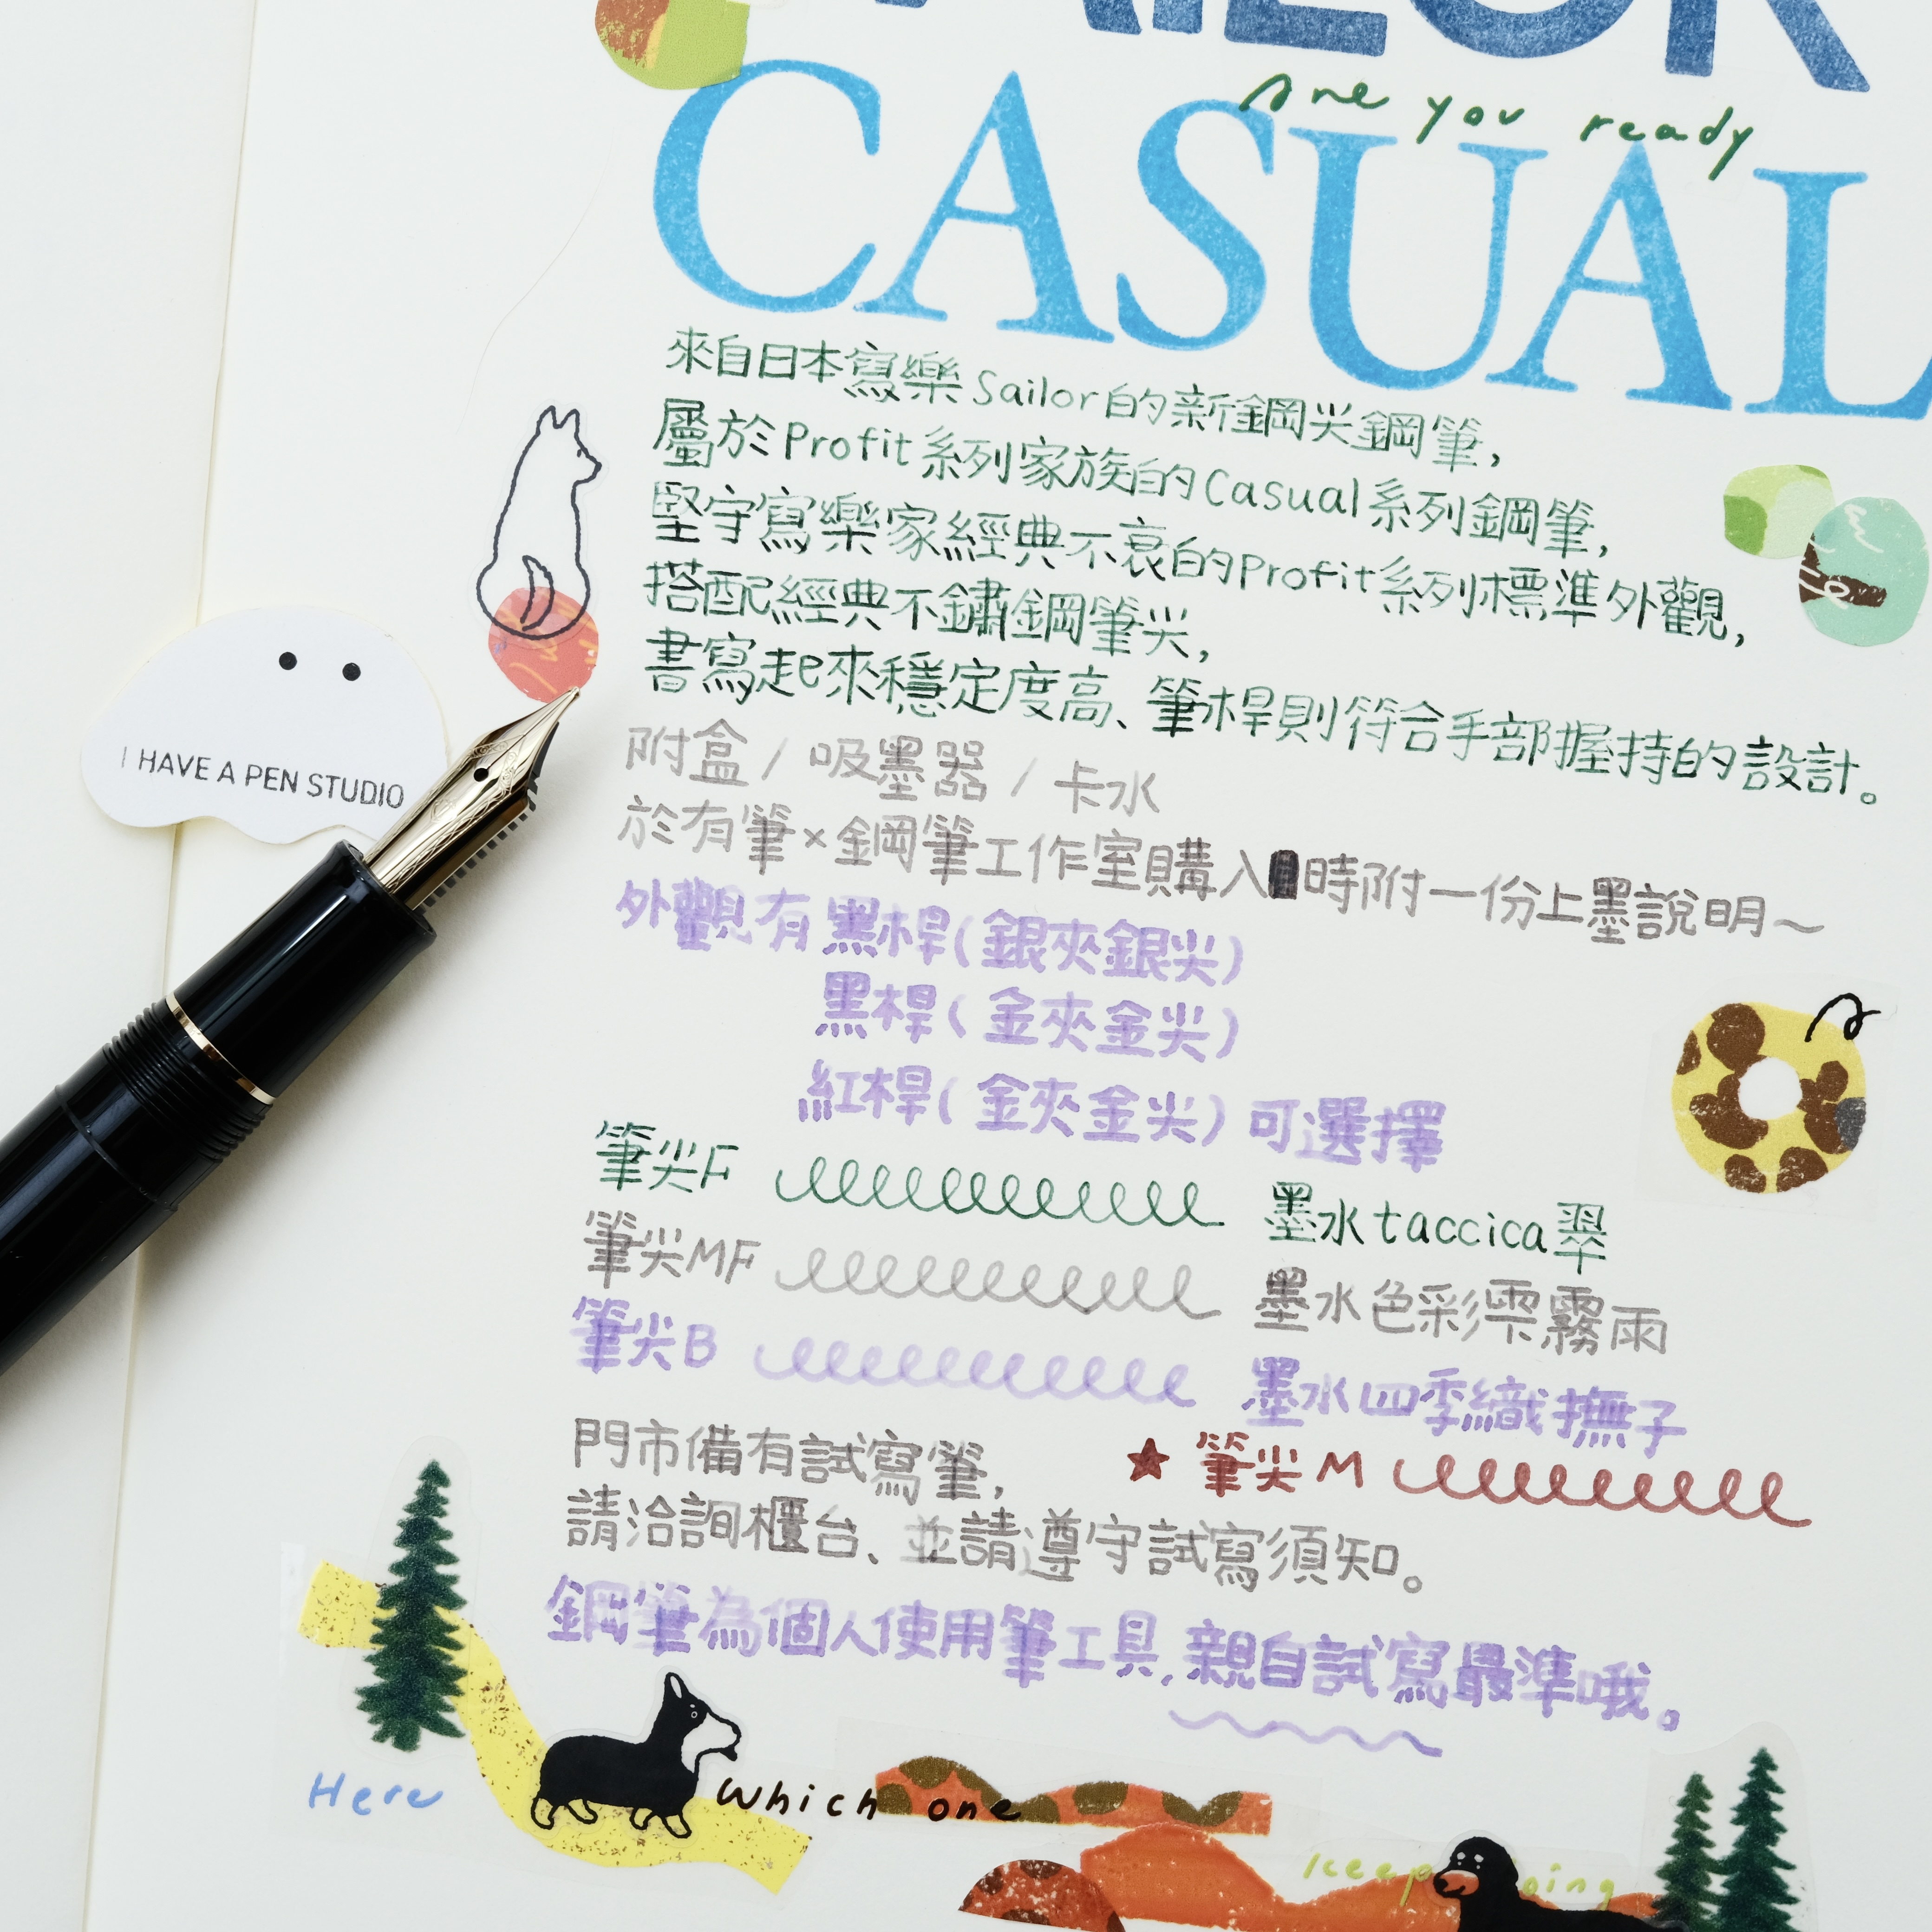 SAILOR
Are you ready
CASUAL
來自日本寫樂Sailor的新鋼尖鋼筆,
屬於Profit系列家族的Casual系列鋼筆,
堅守寫樂家經典不衰的Profit系列標準外觀,
搭配經典不鏽鋼筆尖,
書寫起來穩定度高、筆桿則符合手部握持的設計。
I HAVE A PEN STUDIO
附盒/吸墨器/卡水
於有筆×鋼筆工作室購入時附一份上墨說明~
外觀有黑桿(銀夾銀尖)
黑桿(金夾金尖)
紅桿(金夾金尖)可選擇
筆尖F 墨水taccica翠
筆尖MF 墨水色彩雫霧雨
筆尖B 墨水四季織撫子
★筆尖M
門市備有試寫筆,
請洽詢櫃台、並請遵守試寫須知。
鋼筆為個人使用筆工具,親自試寫最準哦。
Here
Which one
keep oing